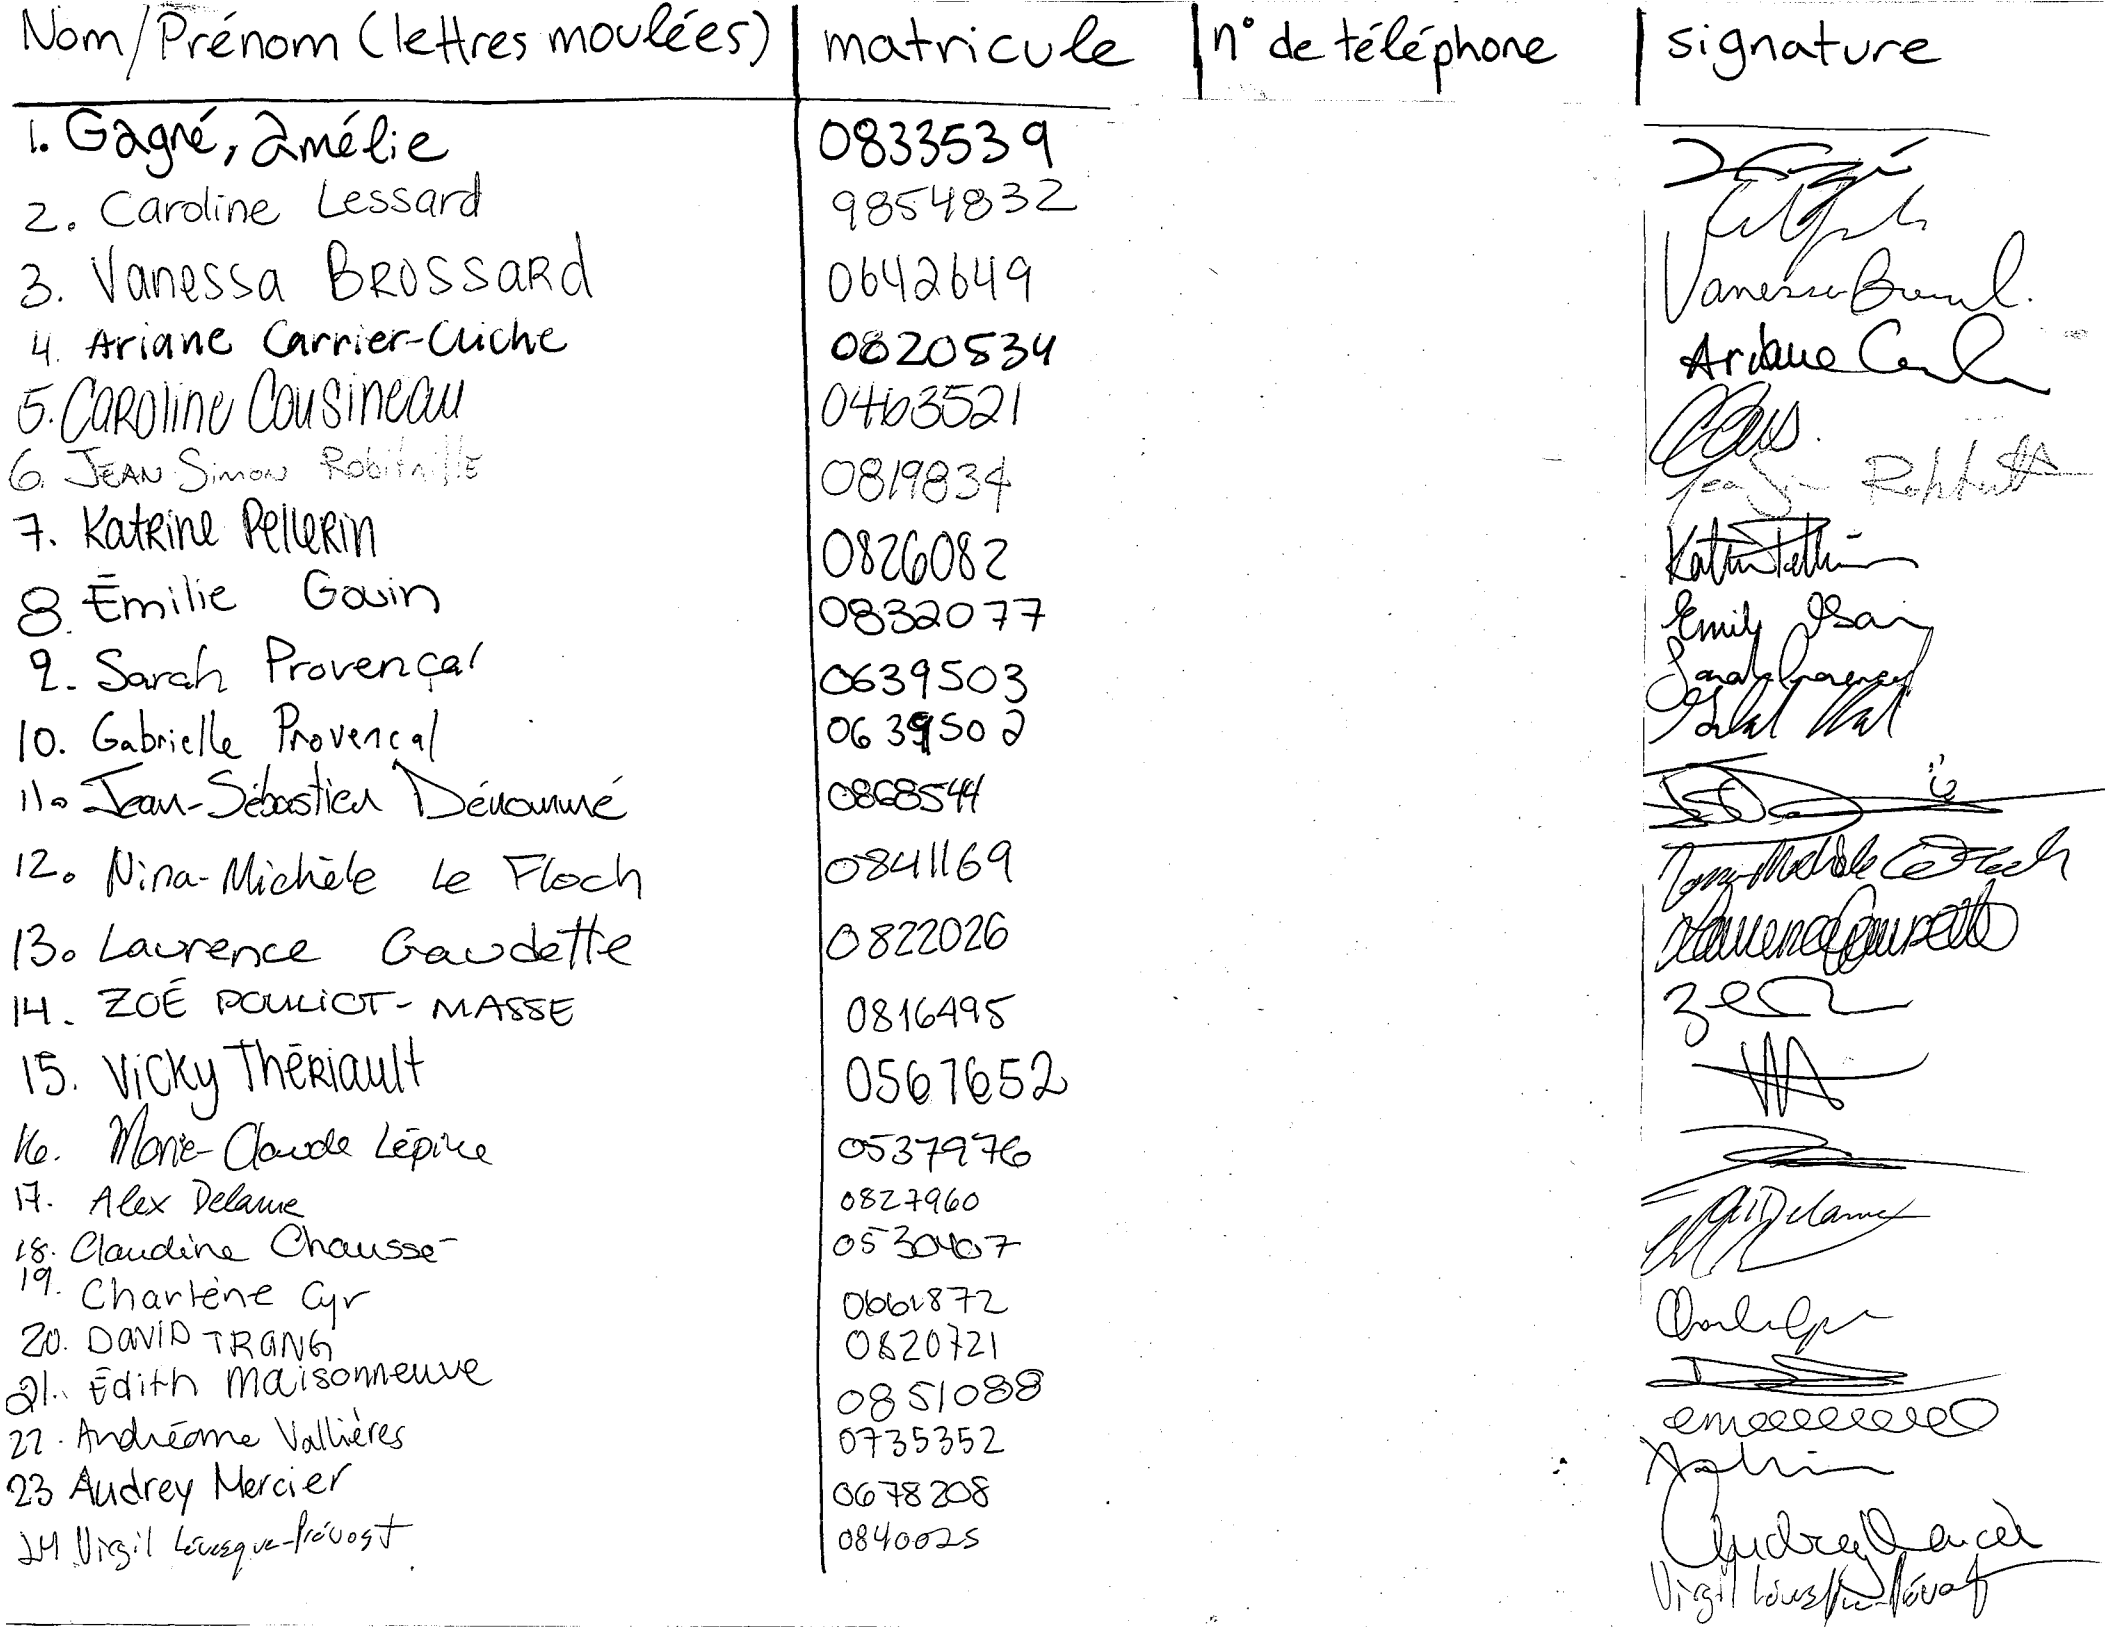 Nom/Prénom (lettres moulées) matricule n° de téléphone signature
1. Gagné, Amélie 0833539
2. Caroline Lessard 9854832
3. Vanessa BROSSARd 0642649 Vanessa
4. Ariane Carrier-Cliche 0820534 Ariane
5. CAROline COUSineau 0463521
6. JEAN Simon Robitaille 0819834
7. KatRine PelleRin 0826082
8. Émilie Gouin 0832077 Emily
9. Sarah Provençal 0639503 Sarah Provençal
10. Gabrielle Provençal 0639502
11. Jean-Sébastien Dénommé 0868544
12. Nina-Michèle Le Floch 0841169 Nina-Michèle Le Floch
13. Laurence Gaudette 0822026 Laurence Gaudette
14. ZOÉ POULIOT-MASSE 0816495
15. Vicky ThéRiault 0567652
16. Marie-Claude Lépine 0537976
17. Alex Delarue 0827960
18. Claudine Chaussé 0530407
19. Charlène Cyr 0661872
20. DAVID TRANG 0820721
21. Édith Maisonneuve 0851088
22. Andréanne Vallières 0735352
23 Audrey Mercier 0678208 Audrey Mercier
24 Virgil Lévesque-Prévost 0840025
Virgil Lévesque-Prévost